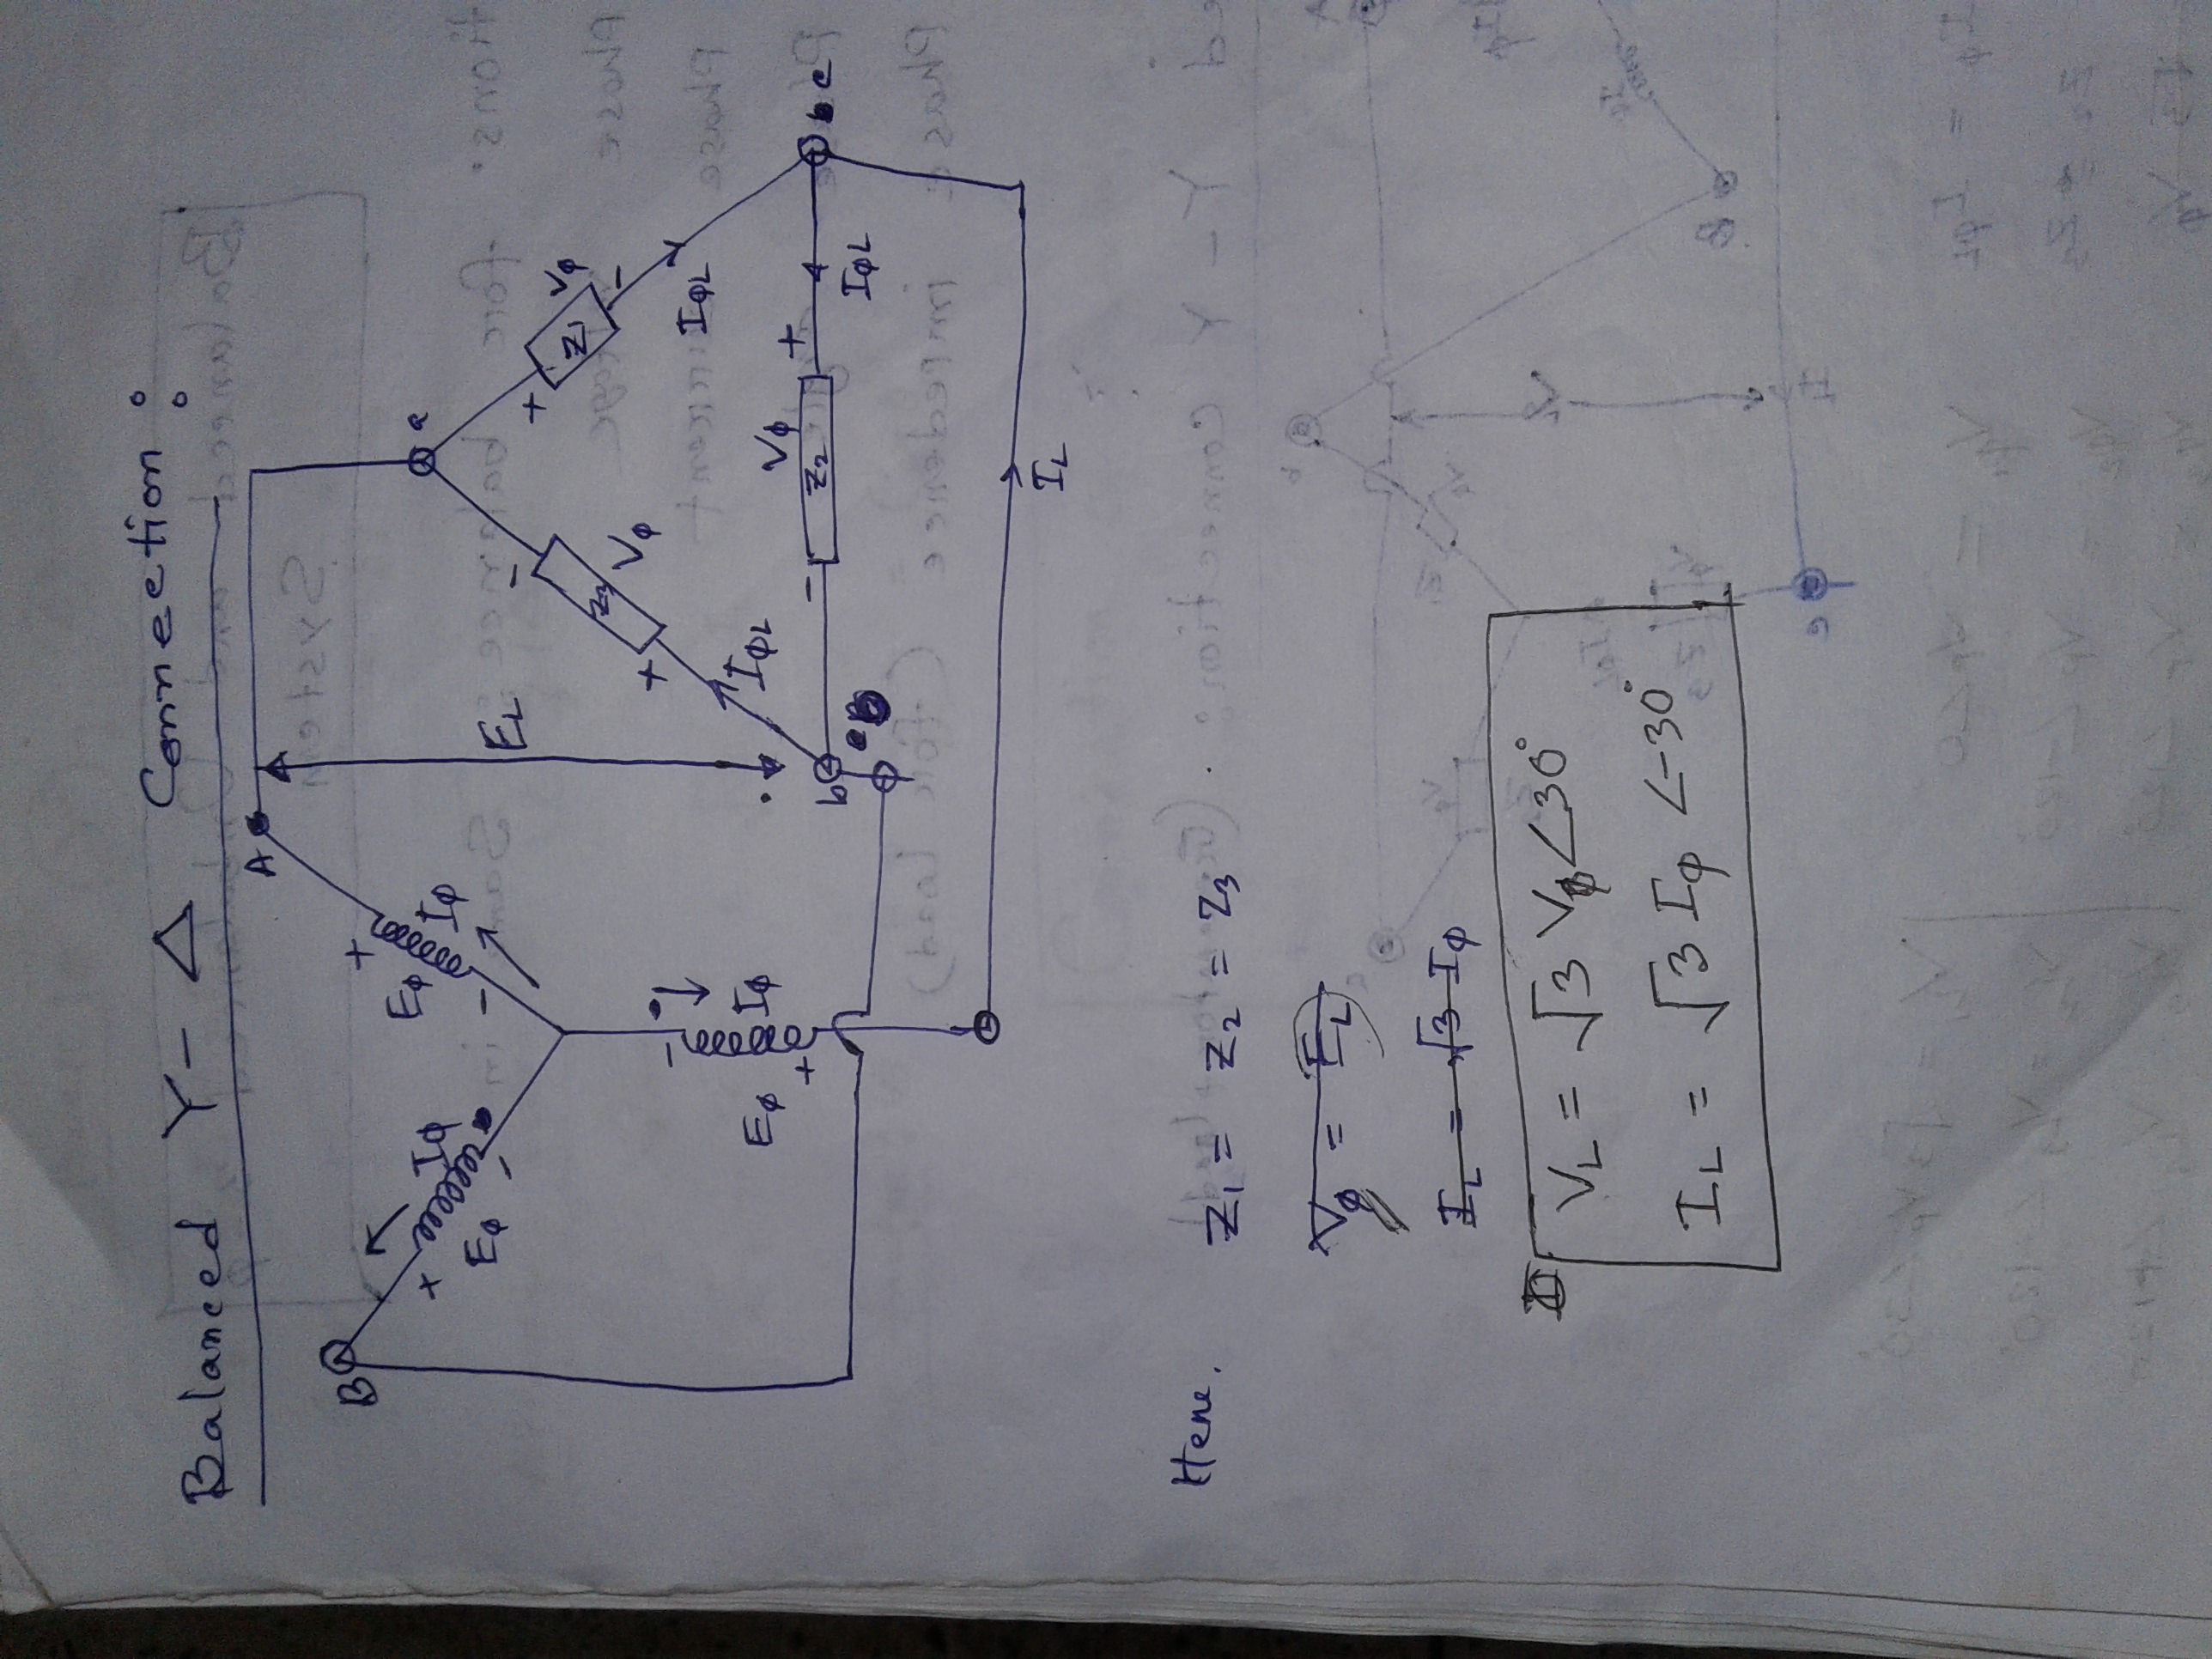 Balanced Y- Δ Connection :
A
B
+
Iφ
Eφ
-
+
Eφ
Iφ
-
EL
a
-
Z3
Vφ
+
IφL
+
Z1
Vφ
-
IφL
-
Eφ
Iφ
+
b
-
Z2
Vφ
+
IφL
c
IL
Here,
Z1 = Z2 = Z3
Vφ = EL
IL = √3 Iφ
VL = √3 Vφ∠30°
IL = √3 Iφ ∠-30°